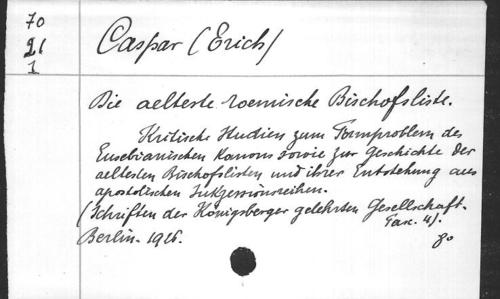 70
21
1
Caspar (Erich)
Die aelteste roemische Bischofsliste.
Kritische Studien zum Formproblem des
Eusebianischen Kanons sowie zur Geschichte der
aeltesten Bischofslisten und ihrer Entstehung aus
apostolischen Sukzessionsreihen.
(Schriften der Königsberger gelehrten Gesellschaft.
Fasc. 4).
Berlin. 1926.
8o